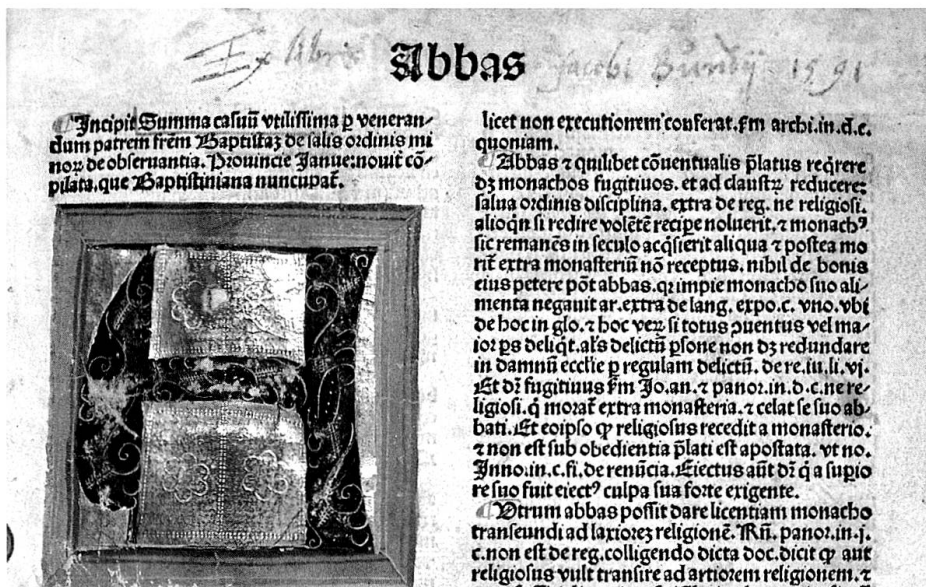 Ex libris Jacobi Bundij 1591
Abbas
Incipit Summa casuũ vtilissima ꝑ veneran⸗
dum patrem frẽm Baptistaꝫ de salis ordinis mi
noꝝ de obseruantia. Prouincie Janue: nouit̃ cõ⸗
pilata. que Baptistiniana nuncupat̃.
licet non executionem conferat. ẜm archi. in. d. c.
quoniam.
Abbas ⁊ quilibet cõuentualis p̃latus reqͥrere
dꝫ monachos fugitiuos. et ad claustꝝ reducere:
salua ordinis disciplina. extra de reg. ne religiosi.
alioqͥn si redire volẽtẽ recipe noluerit. ⁊ monachꝰ
sic remanẽs in seculo acqͥsierit aliqua ⁊ postea mo
rit̃ extra monasteriũ nõ receptus. nihil de bonis
eius petere põt abbas. qꝛ impie monacho suo ali⸗
menta negauit ar. extra de lang. expo. c. vno. vbi
de hoc in glo. ⁊ hoc veꝝ si totus ꝯuentus vel ma⸗
ior ps deliqͥt. al's delictũ ꝑsone non dꝫ redundare
in damnũ eccl'ie ꝑ regulam delictũ. de re. iu. li. vj.
Et dꝛ̃ fugitiuus ẜm Jo. an. ⁊ panor. in. d. c. ne re⸗
ligiosi. q̇ morat̃ extra monasteria. ⁊ celat se suo ab⸗
bati. Et eoipso ꝙ religiosus recedit a monasterio.
⁊ non est sub obedientia p̃lati est apostata. vt no.
Inno. in. c. fi. de renũcia. Eiectus aũt dꝛ̃ q̇ a suꝑio
re suo fuit eiectꝰ culpa sua forte exigente.
Vtrum abbas possit dare licentiam monacho
transeundi ad laxiorẽ religionẽ. Rñ. panor. in. j.
c. non est de reg. colligendo dicta doc. dicit ꝙ aut
religiosus vult transire ad artiorem religionem. ⁊